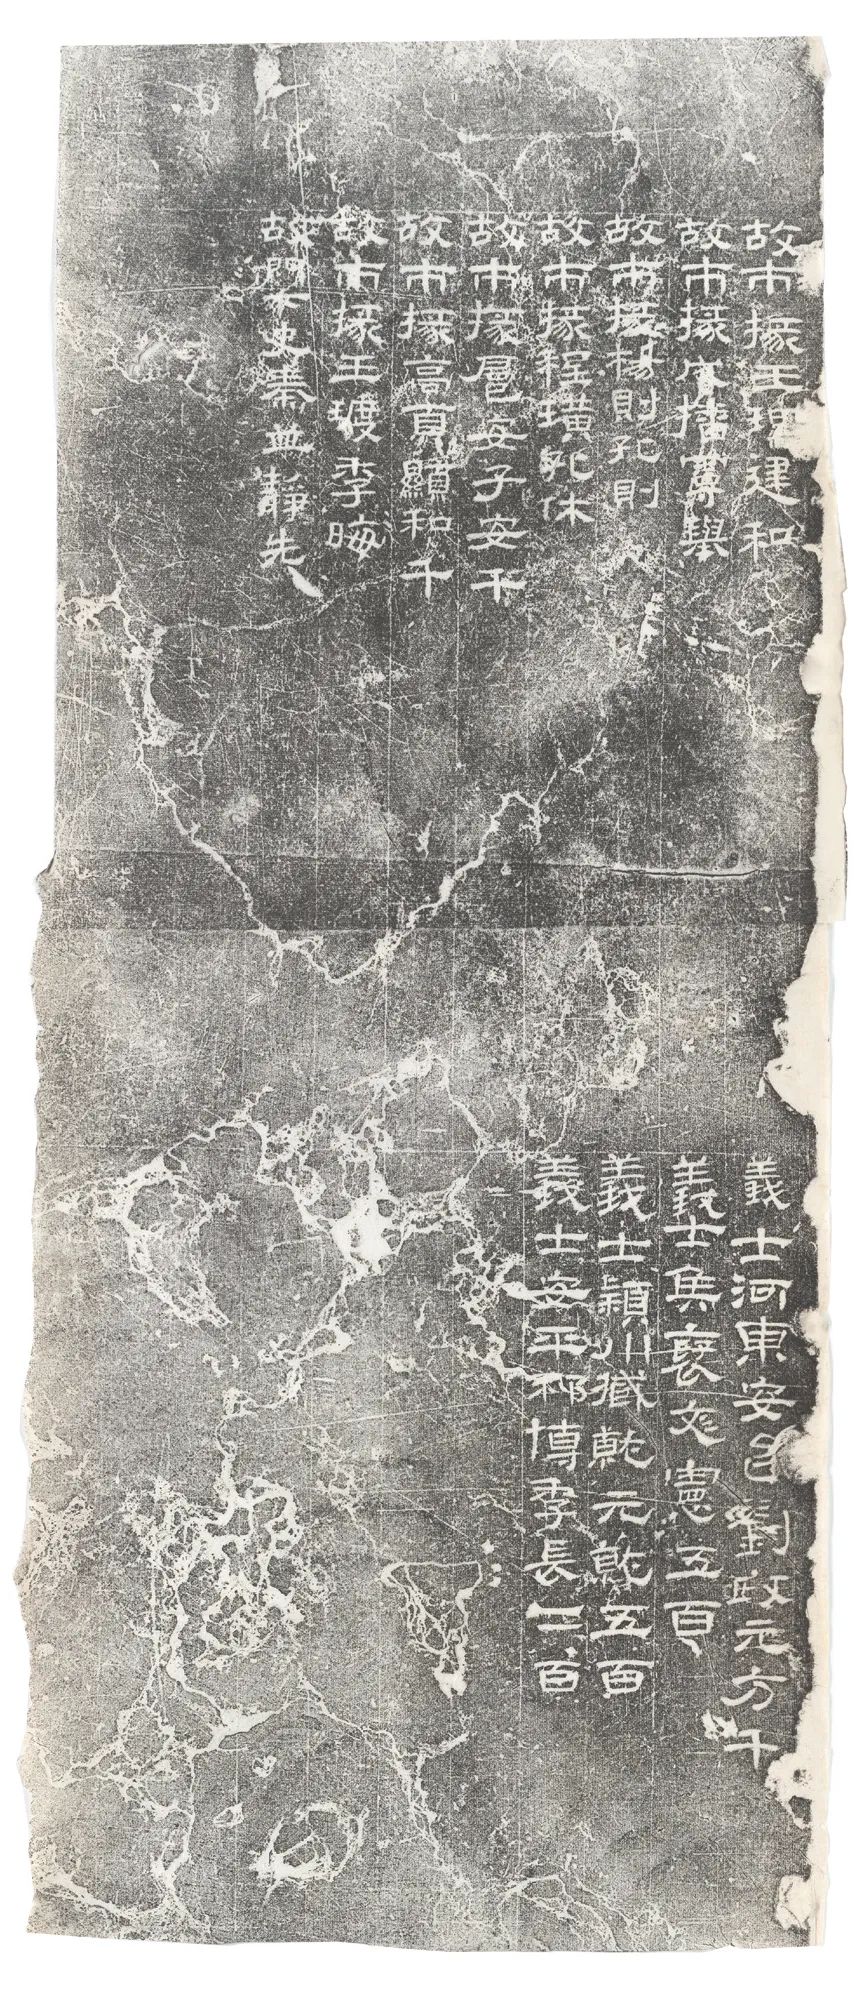 故市掾王理建和
故市掾成播曼舉
故市掾楊則孔則
故市掾程璜孔休
故市掾扈安子安千
故市掾高頁顯和千
故市掾王季晦
故門下史秦並靜先
義士河東安邑劉政元方千
義士侯褒文憲五百
義士潁川臧就元就五百
義士安平祁博季長二百